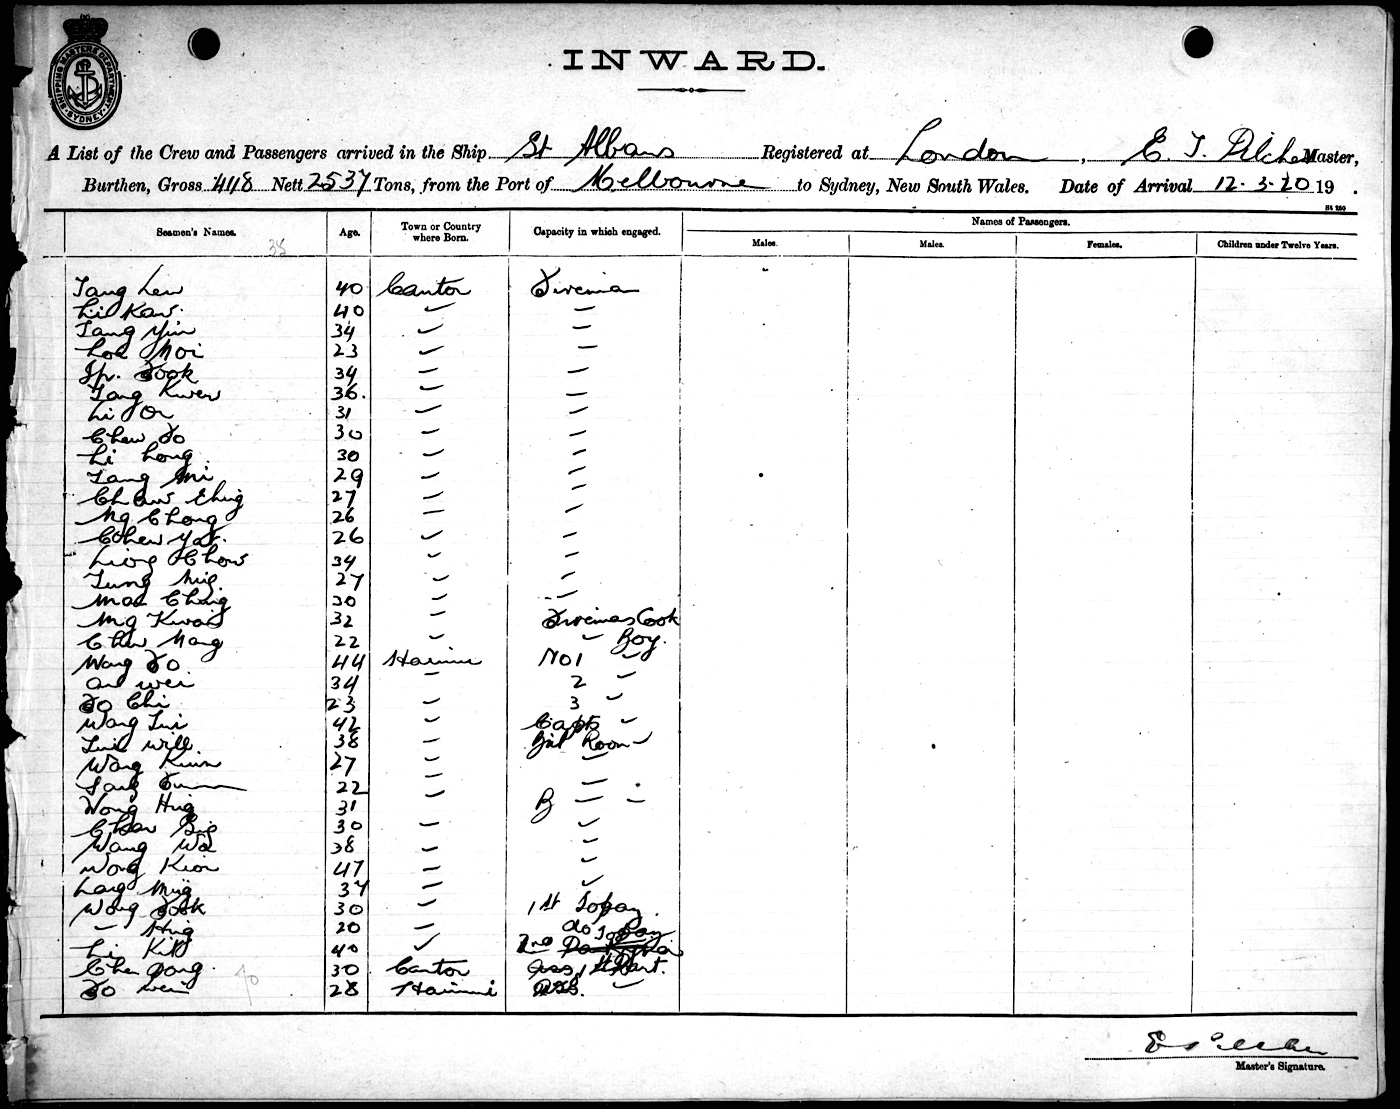 SHIPPING MASTERS DEPARTMENT
SYDNEY
INWARD.
A List of the Crew and Passengers arrived in the Ship St Albans Registered at London, E. T. Pilcher Master,
Burthen, Gross 4118 Nett 2537 Tons, from the Port of Melbourne to Sydney, New South Wales. Date of Arrival 12.3.20 19 .
St 250
Seamen's Names. Age. Town or Country where Born. Capacity in which engaged. Names of Passengers.
Males. Males. Females. Children under Twelve Years.
38
Tang Lew 40 Canton Fireman
Li Kaw 40
Tang Yin 34
Loe Moi 23
Ip. Fook 34
Tang Kwen 36.
Li On 31
Chew So 30
Li Long 30
Tang Mi 29
Chaw Ching 27
Ng Chong 26
Chew Yat. 26
Liong Chow 34
Tung Mig 27
Mac Chang 30
Ng Kwai 32 Firemans Cook
Chew Mang 22 Boy.
Wong So 44 No 1
wei 34 2
So Chi 23 3
Wong Tui 42 Capts
Tui Will 38 Room
Wang Kiun 27
22
Wong Hing 31 B
Chan 30
Wang Wa 38
Wong Kion 47
Lang Mug 37
Wong Fook 30 1st Topay
Hing 20 do Topay
Li Kit 40 2nd
Chew Gong 30 Canton 1st Pant.
So Wei 28
70
Master's Signature.